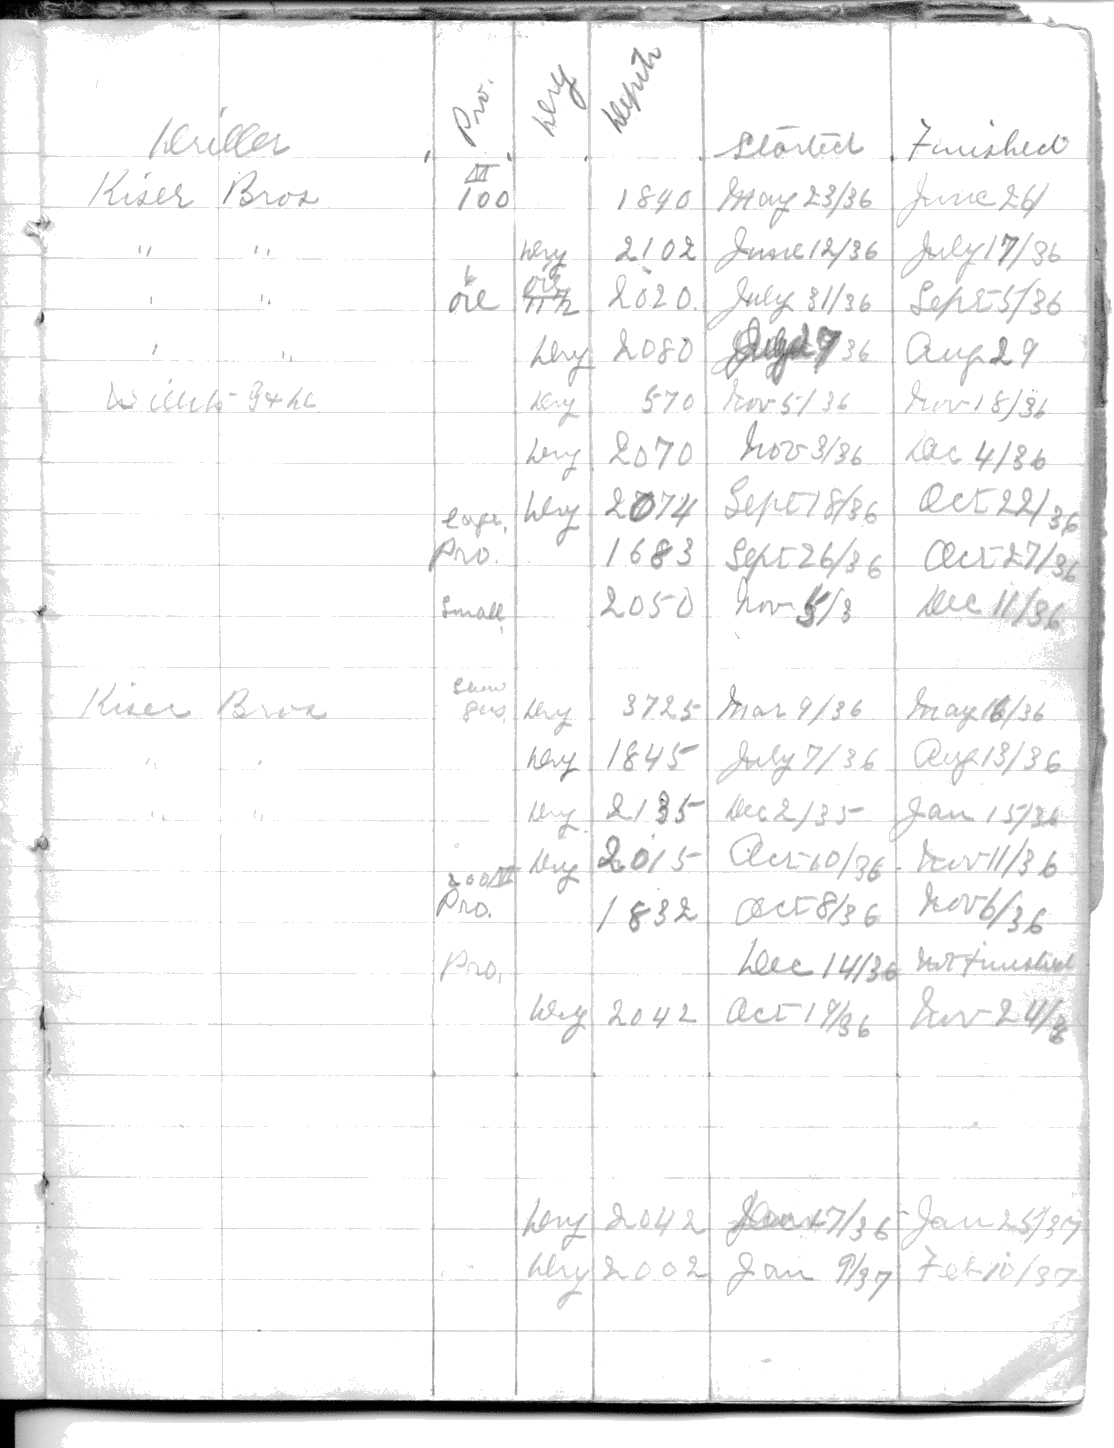 Driller Pro. Dry Depth Started Finished
Kiser Bros 100 M 1840 May 23/36 June 26/
" " Dry 2102 June 12/36 July 17/36
" " oil 2020 July 31/36 Sept 5/36
" " Dry 2080 36 Aug 29
Dry 570 Nov 5/36 Nov 18/36
Dry 2070 Nov 3/36 Dec 4/36
Dry 2074 Sept 18/36 Oct 22/36
Pro. 1683 Sept 26/36 Oct 27/36
Small 2050 Nov 5/3 Dec 11/36
Kiser Bros Show gas Dry 3725 Mar 9/36 May 16/36
" " Dry 1845 July 7/36 Aug 13/36
" " Dry 2135 Dec 2/35 Jan 15/36
Dry 2015 Oct 10/36 Nov 11/36
200 M
Pro. 1832 Oct 8/36 Nov 6/36
Pro. Dec 14/36 Not Finished
Dry 2042 Oct 19/36 Nov 24/3
Dry 2042 17/36 Jan 25/37
Dry 2002 Jan 9/37 Feb 10/37